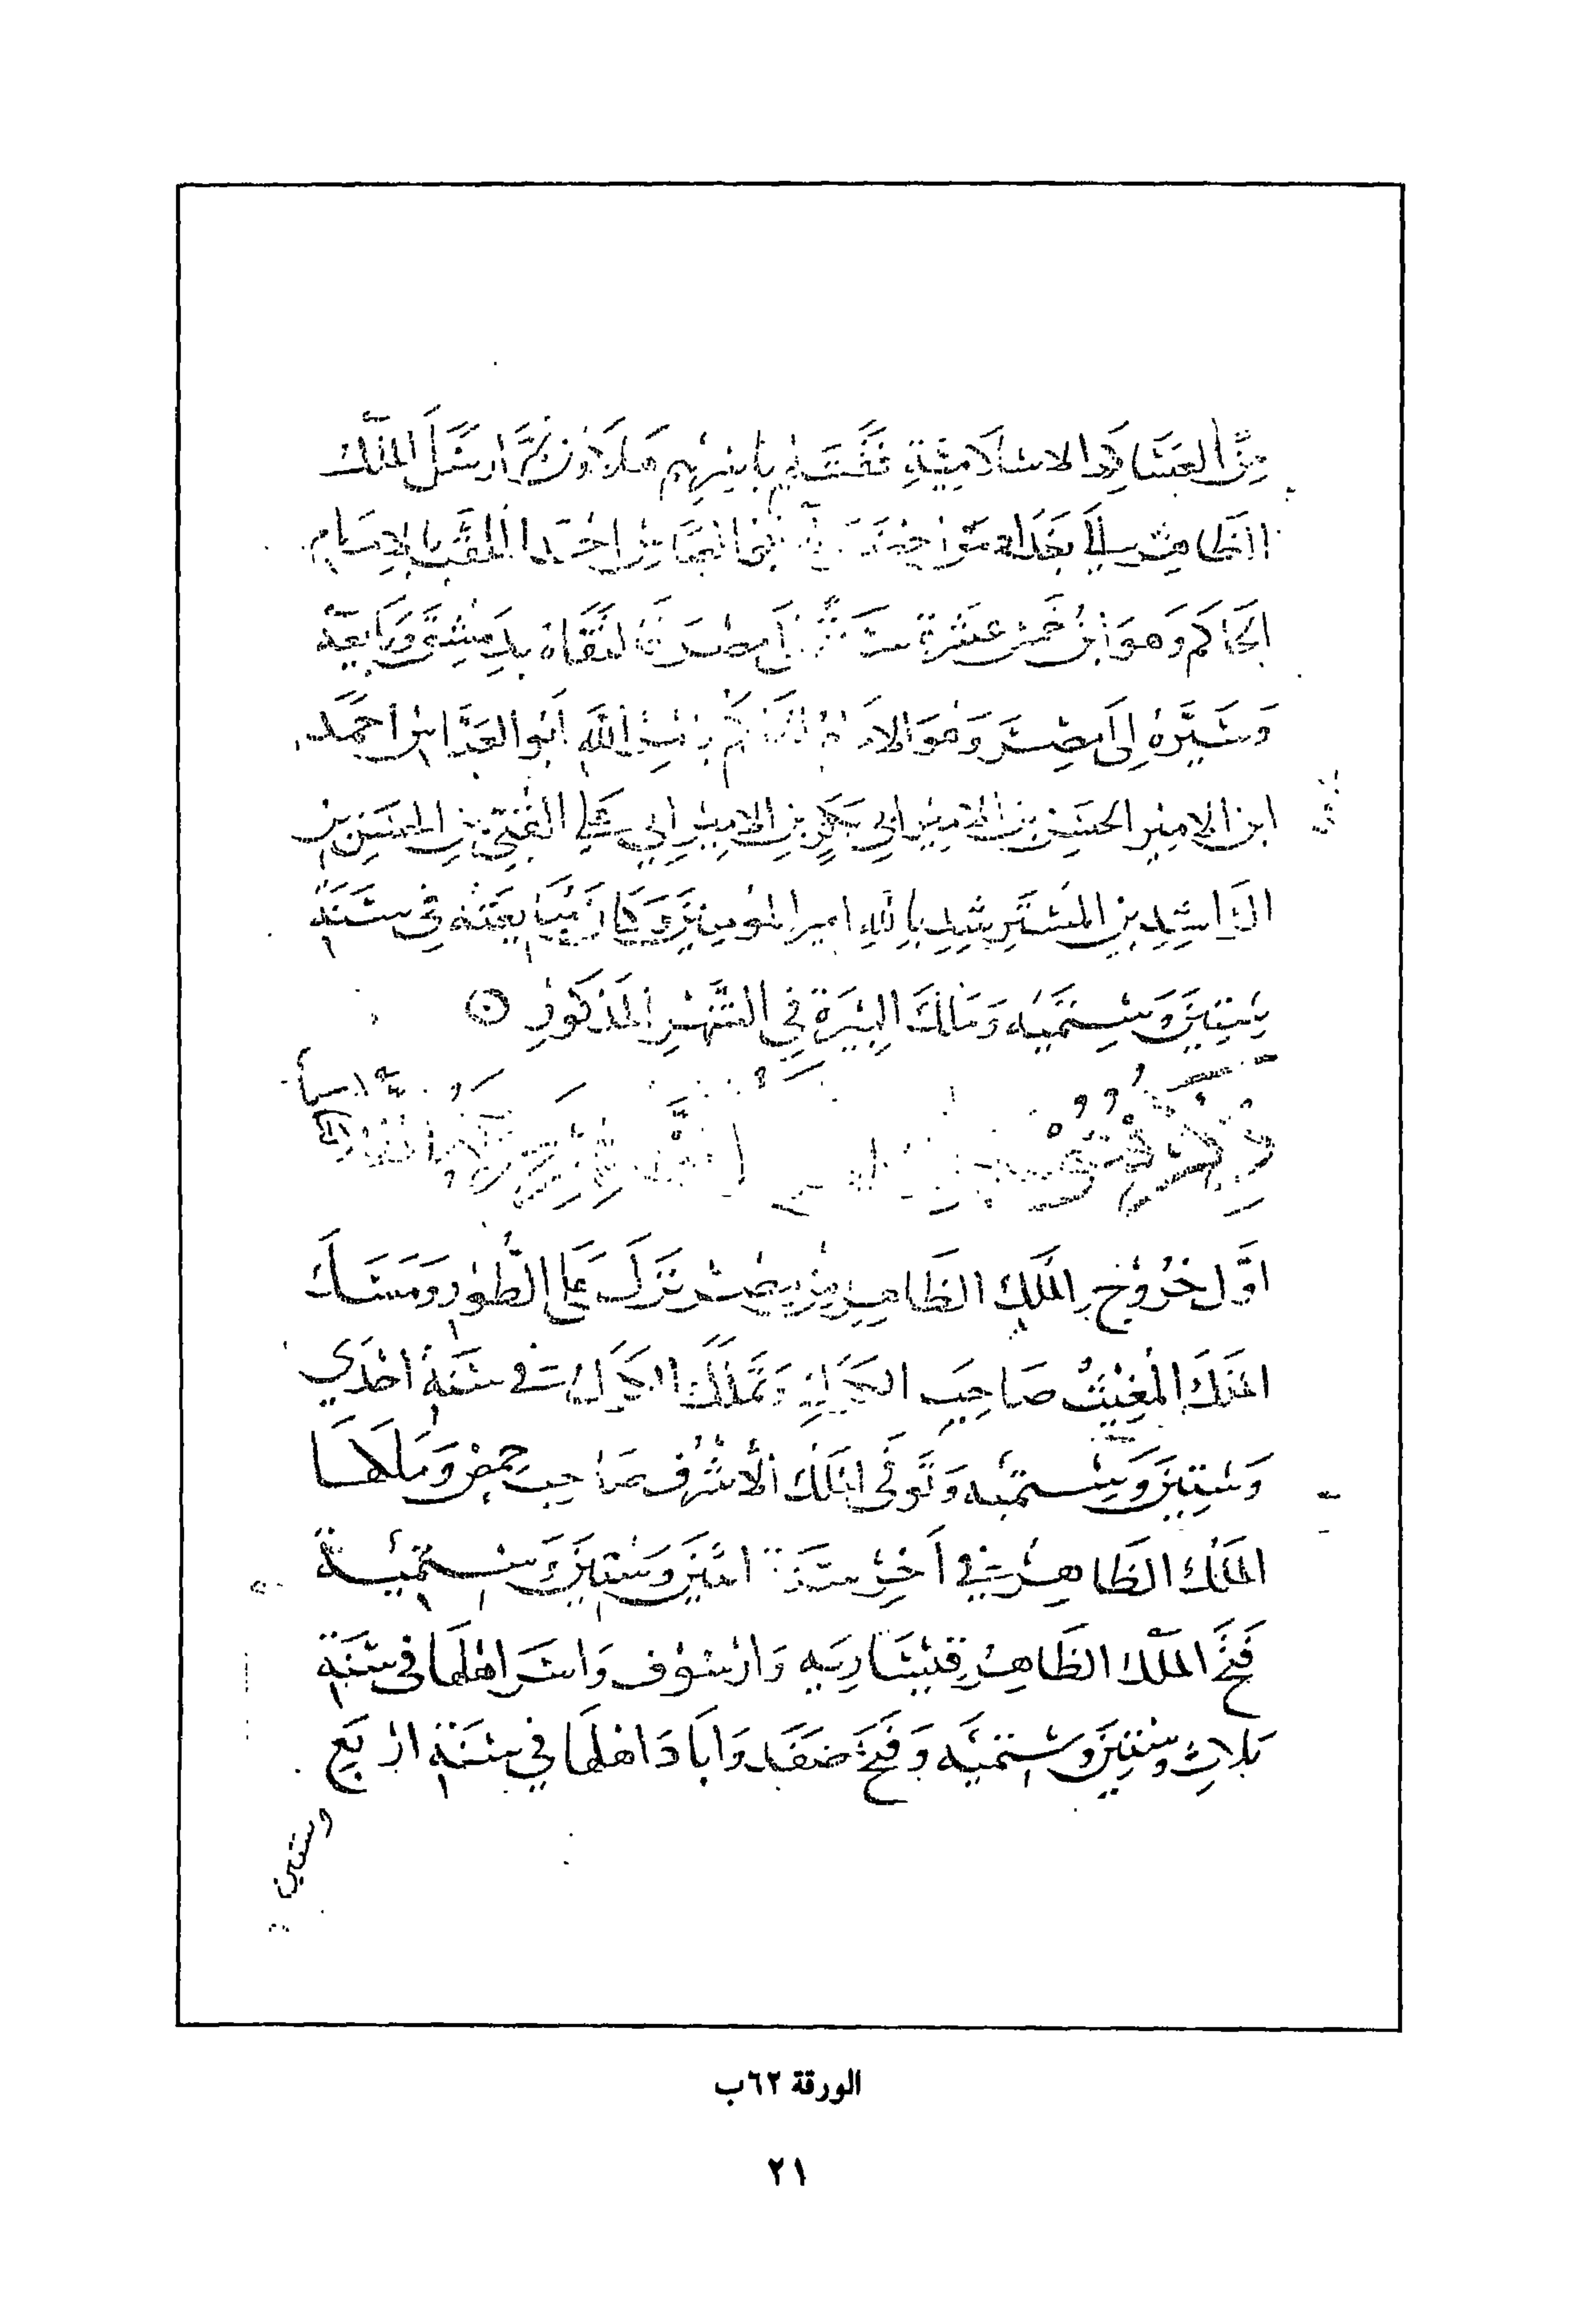 من العساكر الاسلامية فقتلهم باسرهم هلاوون ثم ارسل الملك
الظاهر الى بغداد من احمد الملقب بالامام
الحاكم وهو ابن خمس عشرة سنة الى مصر فالتقاه بدمشق وبايعه
وسيره الى مصر وهو الامام الحاكم بامر الله ابو العباس احمد
ابن الامير الحسن بن الامير ابي بكر بن الامير ابي علي القبي بن الحسن بن
الراشد بن المسترشد بالله امير المومنين وكان مبايعته في سنة
ستين وستميه وملك البيرة في الشهر المذكور
ذكر فتوح
اول خروج الملك الظاهر من مصر نزل على الطور ومسك
الملك المغيث صاحب الكرك وتملك الكرك في سنة احدي
وستين وستميه وتوفى الملك الاشرف صاحب حمص وملكها
الملك الظاهر في اخر سنة اثنين وستين وستمية
فتح الملك الظاهر قيساريه وارسوف واسر اهلها في سنة
ثلاث وستين وستميه وفتح صفد واباد اهلها في سنة اربع
وستين
الورقة ٦٢ب
٢١